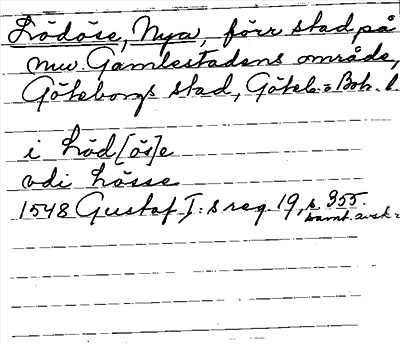 Lödöse, Nya, förr stad på
nuv. Gamlestadens område,
Göteborgs stad, Göteb. o Boh. l.
i Löd[ös]e
vdi Lösse
1548 Gustaf I:s reg 19, s. 355.
samt. avskr.